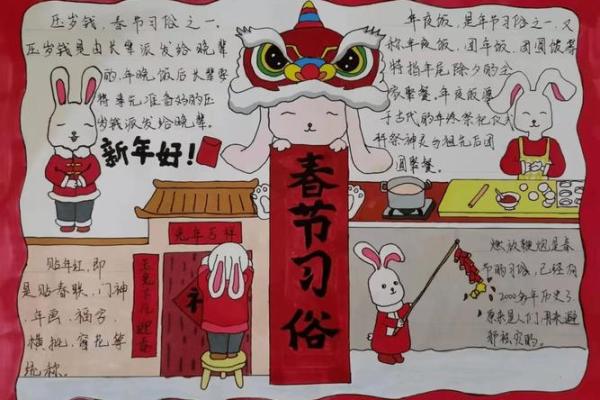 压岁钱，春节习俗之一，
压岁钱是由长辈派发给晚辈
的，年晚饭后长辈要
将事先准备好的压
岁钱派发给晚辈。
新年好！
年夜饭，是年节习俗之一，又
称年夜饭、团年饭、团圆饭等
特指年尾除夕的全
家聚餐。年夜饭源
于古代的年终祭祀仪式
拜祭神灵与祖先后团
圆聚餐。
春节习俗
兔年吉祥
福
贴年红，即
是贴春联、门神
、年画、福字、
横批、窗花等
统称。
燃放鞭炮是春
节的习俗，已经有
2000多年历史了
原来是人们用来避
邪被灾的。